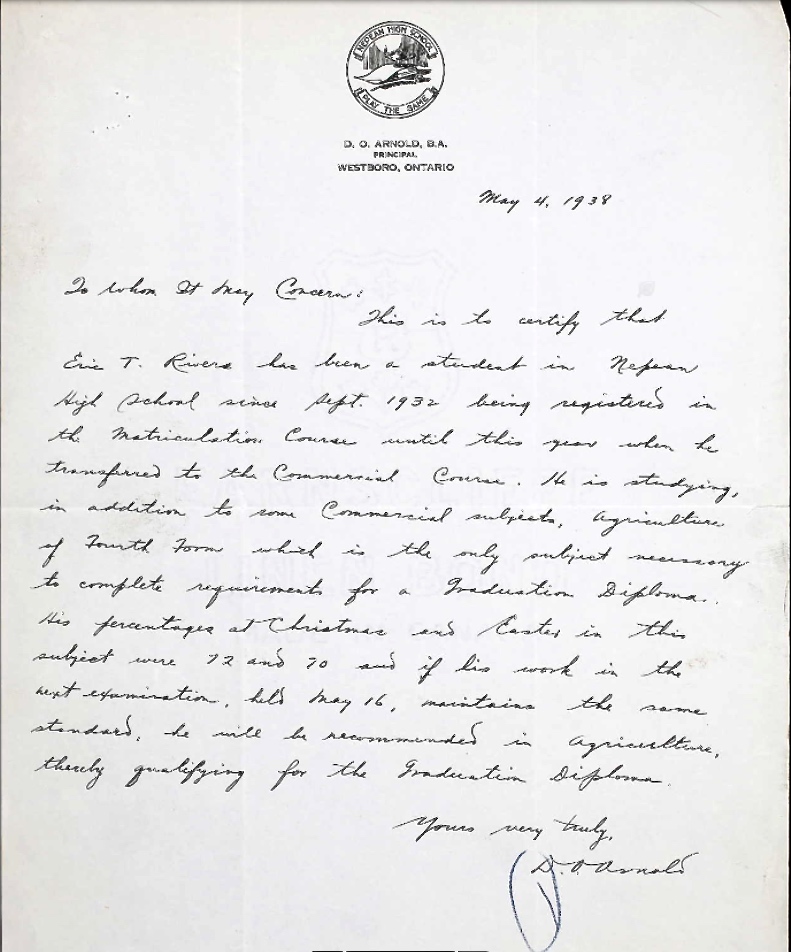 NEPEAN HIGH SCHOOL
PLAY THE GAME
D. O. ARNOLD, B.A.
PRINCIPAL
WESTBORO, ONTARIO
May 4, 1938
To Whom It May Concern:
This is to certify that
Eric T. Rivers has been a student in Nepean
High School since Sept. 1932 being registered in
the Matriculation Course until this year when he
transferred to the Commercial Course. He is studying,
in addition to some Commercial subjects, Agriculture
of Fourth Form which is the only subject necessary
to complete requirements for a Graduation Diploma.
His percentages at Christmas and Easter in this
subject were 72 and 70 and if his work in the
next examination, held May 16, maintains the same
standard, he will be recommended in Agriculture,
thereby qualifying for the Graduation Diploma.
Yours very truly,
D. O. Arnold